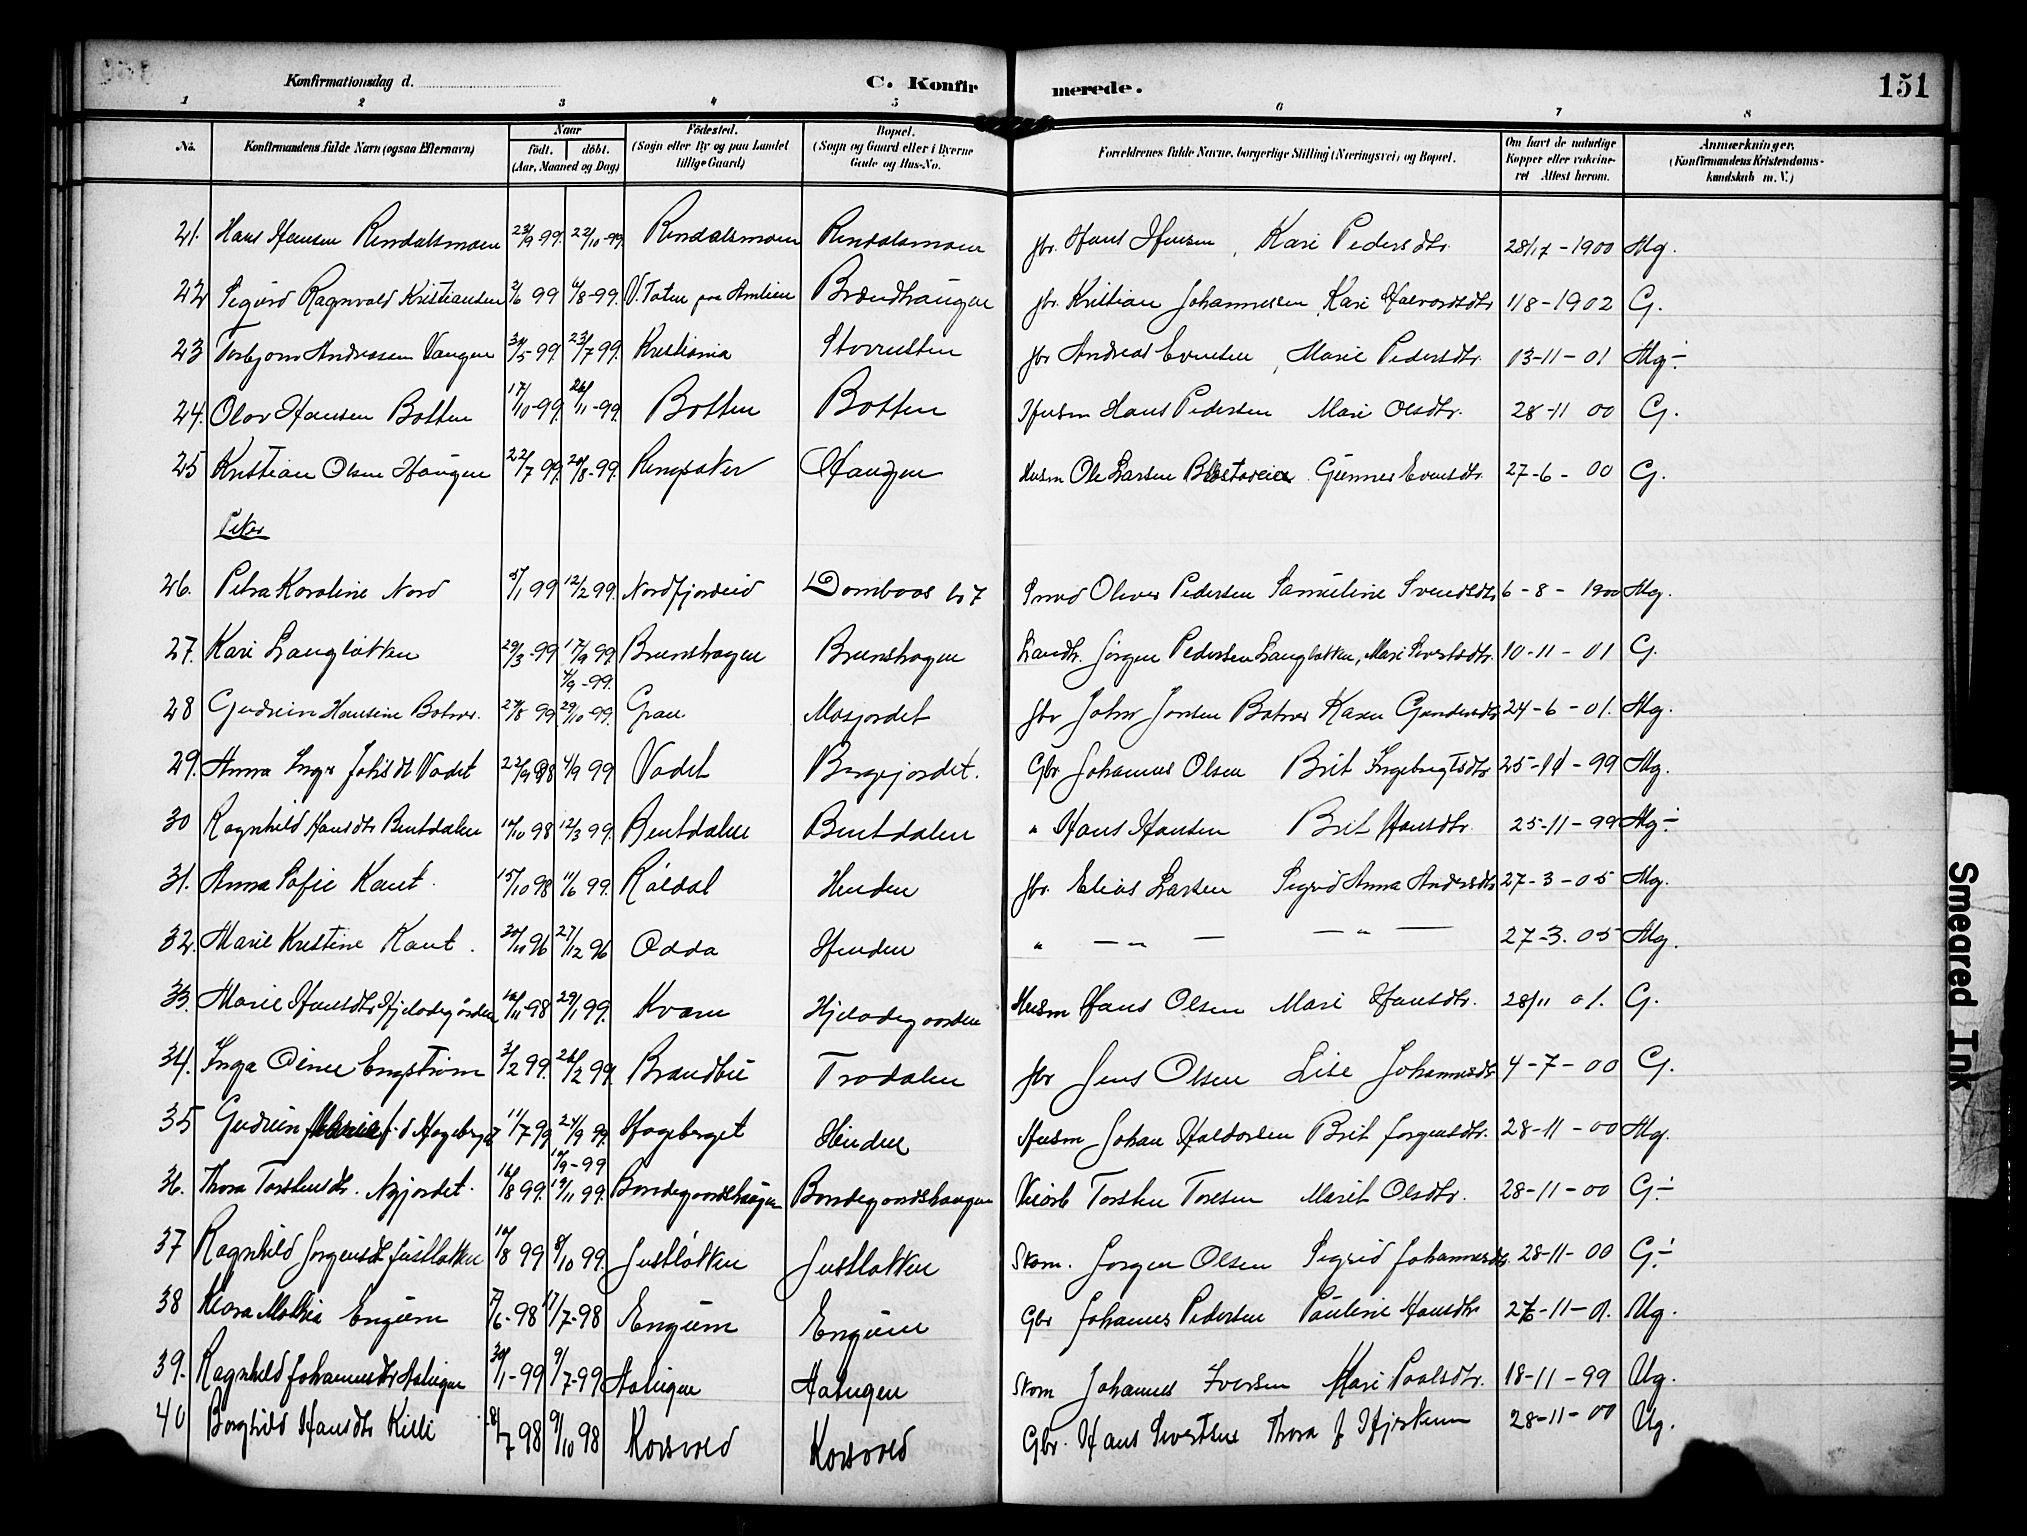 Konfirmationsdag d. C. Konfirmerede. 151
1 2 3 4 5 6 7 8
No. Konfirmandens fulde Navn (ogsaa Efternavn) Naar født. døbt. (Aar, Maaned og Dag) Fødested. (Sogn eller By og paa Landet tillige Gaard) Bopæl. (Sogn og Gaard eller i Byerne Gade og Hus-No. Forældrenes fulde Navne, borgerlige Stilling (Næringsvei) og Bopæl. Om havt de naturlige Kopper eller vakcineret Attest herom. Anmærkninger. (Konfirmandens Kristendomskundskab m. V.)
21. Hans Hansen Rendalsmoen 23/9 99. 22/10-99. Rendalsmoen Rendalsmoen fbr. Hans Hansen, Kari Pedersdtr. -1900 Mg.
22 Sigurd Ragnvald Kristiansen 2/6 99 6/8-99. V. Toten Brændhaugen fbr. Kristian Johannessen, Kari Halvorsdtr 1/8-1902 G.
23 Torbjørn Andreasen Vangen 30/5-99. 23/7 99. Kristiania Storrusten fbr Andreas Evensen, Marie Pedersdtr. 13-11-01 Mg÷
24. Olav Hansen Botten 17/10-99. 26/11-99. Botten Botten Husm Hans Pedersen Mari Olsdtr. 28-11 00 G.
25 Kristian Olsen Haugen 22/7 99. 20/8-99. Ringsaker Haugen Husm Ole Larsen Gunner Evensdtr. 27-6-00 G.
Piker
26. Petra Karoline Nord 31/1 99 12/2 99. Nordfjordeid Dombaas Smed Oliver Pedersen Samueline Svendsdtr 6-8-1900 Mg.
27. Kari Langløkken 29/3-99 17/9 99. Brunshagen Brunshagen Landh. Jørgen Pedersen Langløkken, Mari Sivertsdtr. 10-11-01 G.
28 Gudrun Hansine Botner. 27/8 99 4/9-99. 29/10-99. Gran Mosjordet fbr John Jonsen Botner Karen Gundersdtr 24-6-01. Mg.
29. Anna Inger Johsdt Vadet 22/9 98 4/9 99 Vadet Bergejordet. Gbr Johannes Olsen Brit Ingebrigtsdtr 25-11-99 Mg.
30 Ragnhild Hansdtr Bentdalen 10/10 98 12/3 99. Bentdalen Bentdalen " Hans Hansen Brit Hansdtr. 25-11-99 Mg÷
31. Anna Sofie Kant. 15/10 98 11/6 99. Røldal Hinden fbr. Elias Larsen Sigrid Anna Andersdtr 27-3-05 Mg.
32. Marie Kristine Kant. 30/11 96 27/12 96 Odda Hinden " — " — — " — 27-3.05 Mg.
33. Marie Hansdtr Hjelodegorden 16/11-98 29/1 99. Kvam Hjelodegorden Husm Hans Olsen Mari Hansdtr. 28/11 01. G.
34. Inga Oline Engstrøm 3/2 99. 26/2 99. Brandbu Trodalen fbr Jens Olsen Lise Johannesdtr 4-7-00 G.
35 Gudrun J.d Hageberget 11/7 99 24/9 99. Hageberget Hinden Husm Johan Haldorsen Brit Jørgensdtr. 28-11-00 Mg.
36. Thora Torstensdtr. Nyjordet. 16/8 99. 10/9-99 19/11 99. Bondegaardshaugen Bondegaardshaugen Torsten Toresen Marit Olsdtr. 28-11-00 G÷
37 Ragnhild Jørgensdt Justløkken 10/8 99 8/10 99. Justløkken Justløkken Skom. Jørgen Olsen Sigrid Johannesdtr. 28-11-00 G÷
38 Klara Mathea Engum 7/6-98 17/7-98 Engum Engum Gbr Johannes Pedersen Pauline Hansdtr 26-11-01. Ug.
39. Ragnhild Johannesdtr Haugen 30/1-99 9/7-99 Haugen Haugen Skom Johannes Iversen Mari Paalsdtr. 18-11-99 Ug.
40 Borghild Hansdtr Killi 18/7 98 9/10 98 Korsvold Korsvold Gbr. Hans Sivertsen Thora J. Hjerkinn 28-11-00 Ug.
Smeared Ink